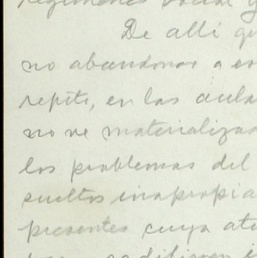 social y
De allí qu
no abandonas a es
repito, en las aula
no se materializa
los problemas del
sueltos inapropia
presentes cuya ate